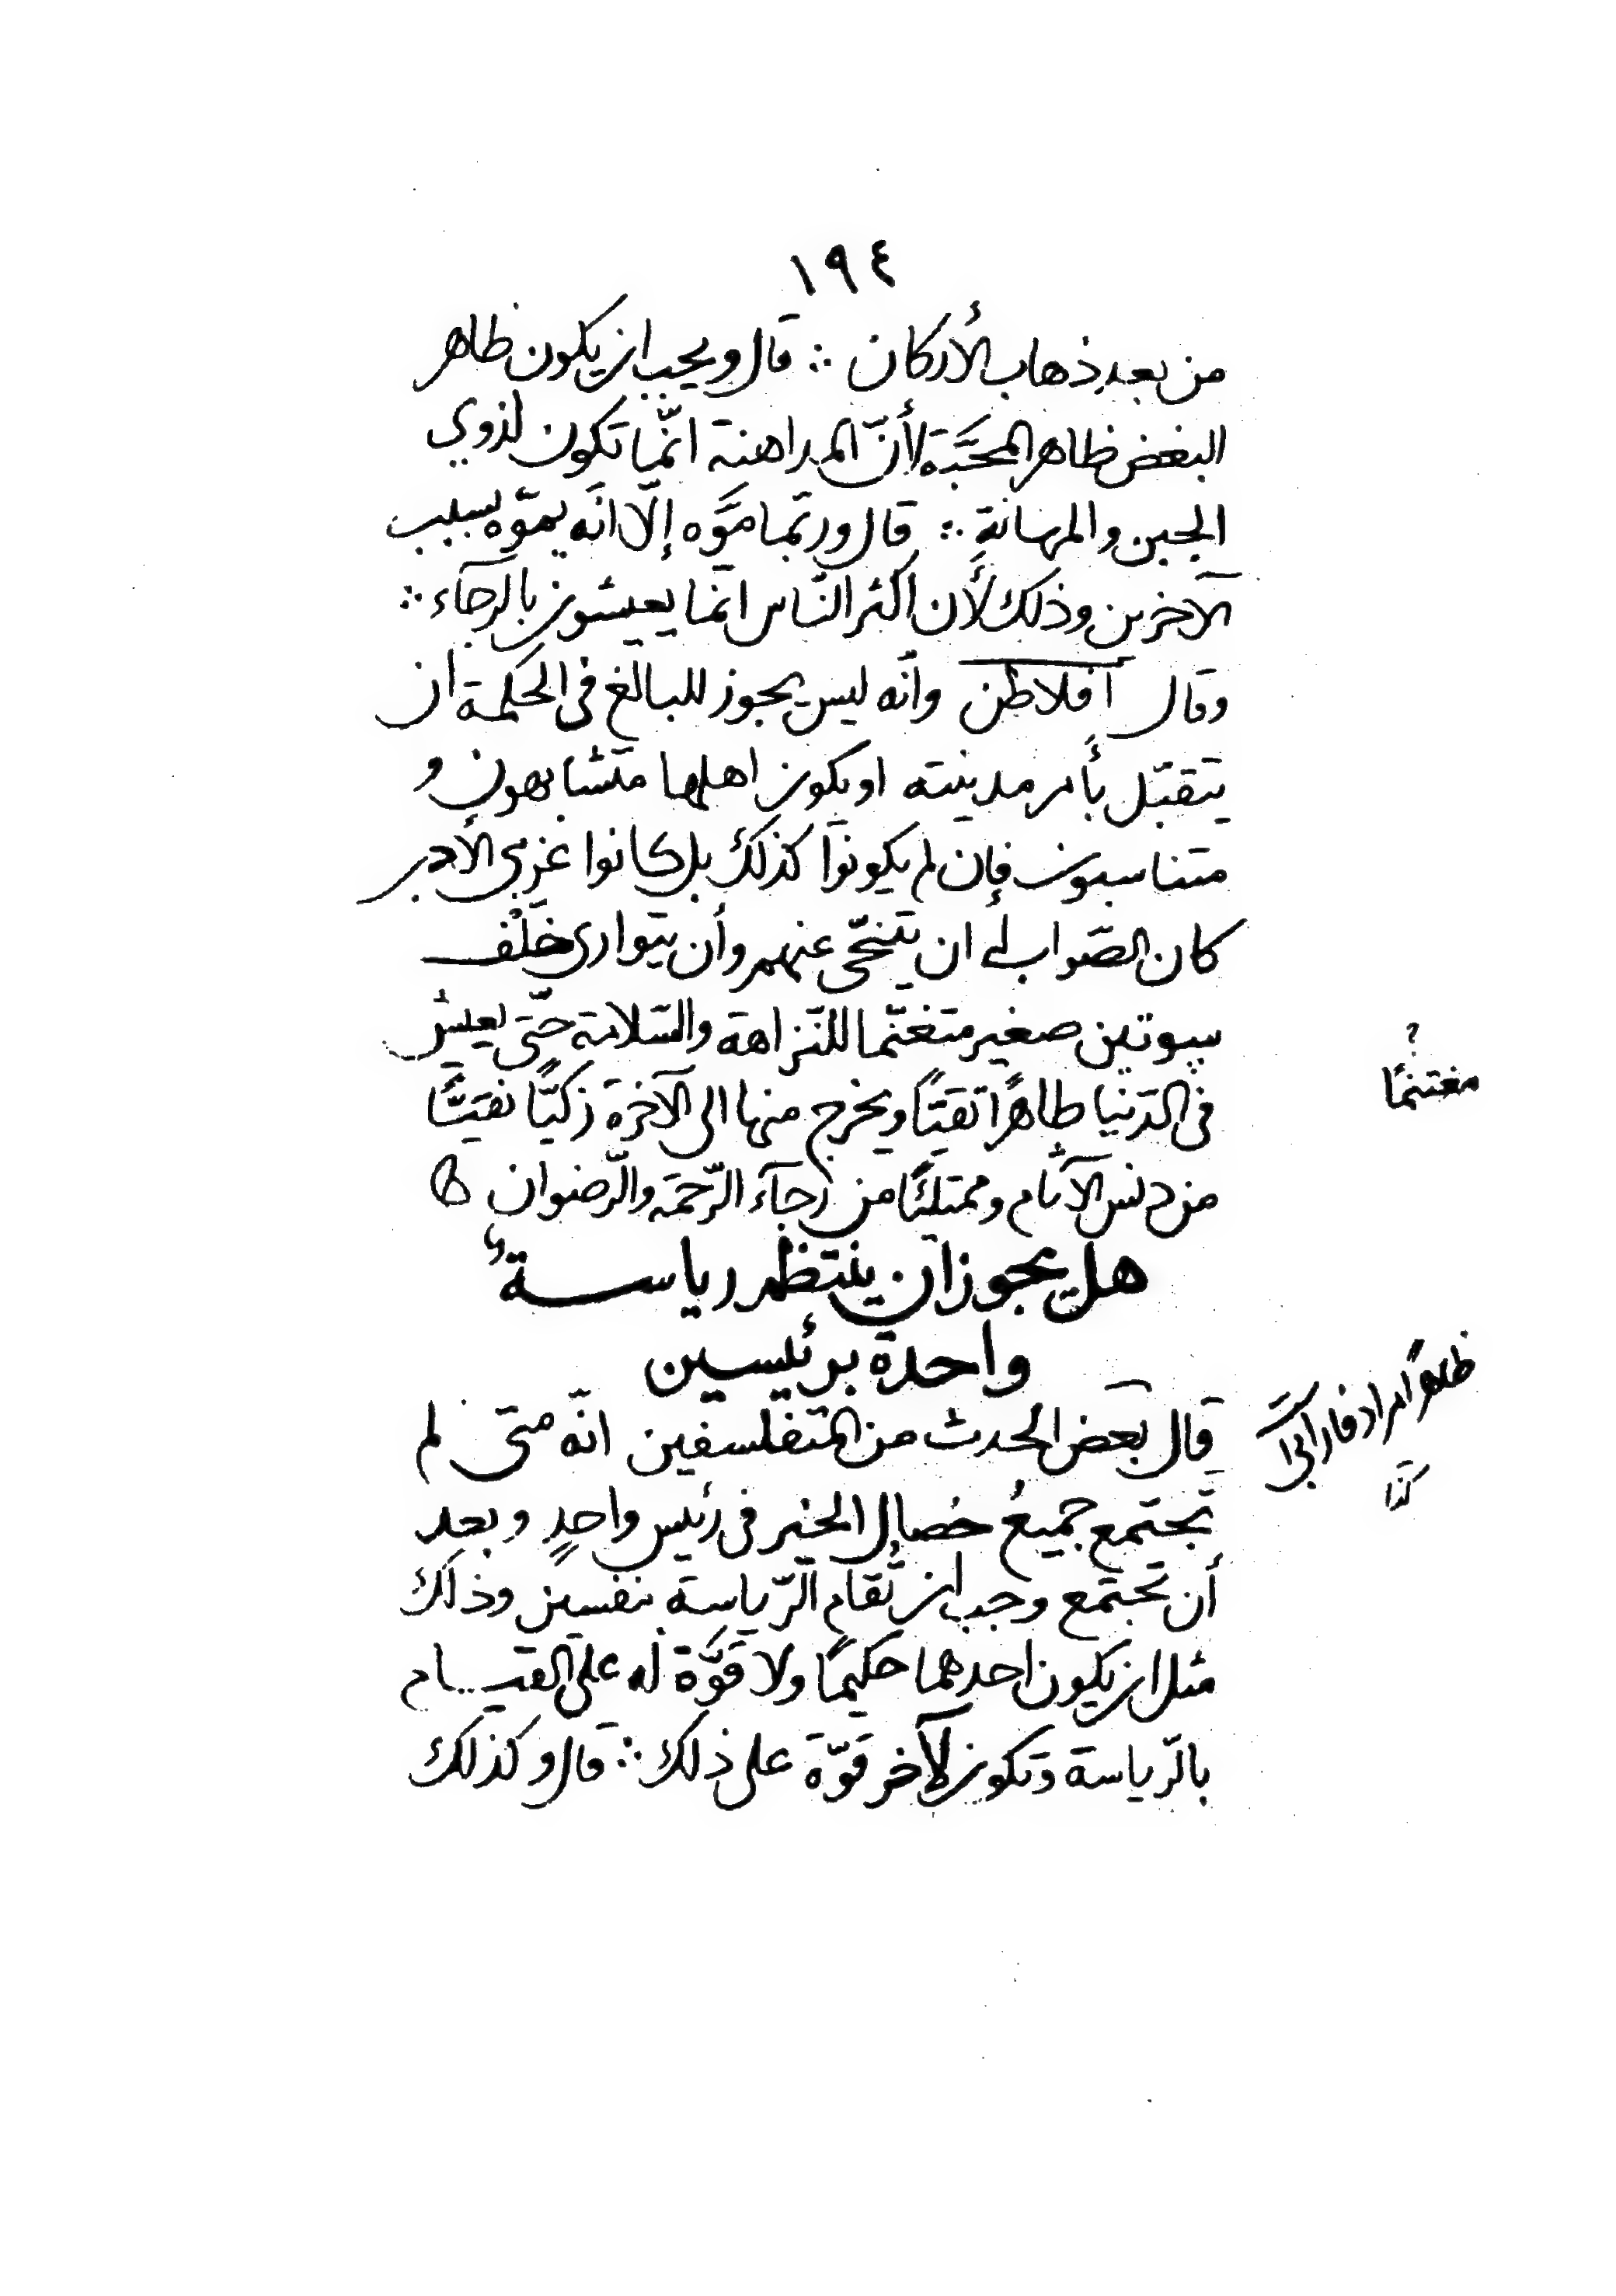 ١٩٤
من بعد ذهاب الأركان ∴ قال ويجب ان يكون ظاهر
البغض ظاهر المحبّة لأنّ المداهنة انّما تكون لذوي
الجبن والمهانةِ ∴ قال وربّما موَّه إلّا انّه يموّه بسبب
الآخرين وذلك لأن اكثر النّاس انّما يعيشون بالرجآء ∴
وقال افلاطن وانّه ليس يجوز للبالغ فى الحكمة ان
يتقبّل بأمر مدينته او يكون اهلها متشابهون و
متناسبون فإن لم يكونوا كذلك بل كانوا غربى الأدب
كان الصّواب له ان يتنحّى عنهم وأن يتوارى خَلْف
سوتين صغير متغنّما للنّزاهة والسّلامة حتّى يعيش
مغتنمًا ?
فى الدّنيا طاهرًا تقيًّا ويخرج منها الى الآخرة زكيًّا نقيًّا
من دنس الآثام وممتلئًا من رجآء الرّحمَة والرّضوان
هل يجوز ان ينتظم رياسة
واحدة برئيسين
قال بعض الحدث من المتفلسفين انّه متى لم
ظاهرًا مراد فارابى
تجتمع جميعُ خصال الخير فى رئيس واحدٍ وبعد
أن تجتمع وجب ان تُقام الرّياسة بنفسين وذلك
مثل ان يكون احدهما حكيمًا ولا قوَّة له على القيام
بالرّياسة وتكون لآخر قوّة على ذلك ∴ قال وكذلك